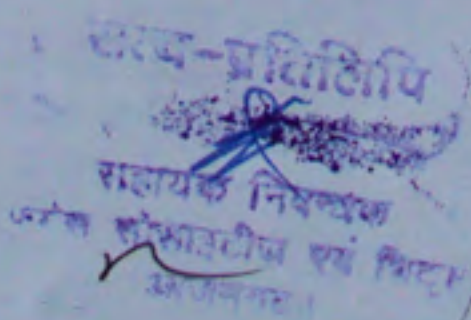 सत्य-प्रतिलिपि
सहायक निबन्धक
सोसाइटीज एवं चिट्स
आजमगढ़।